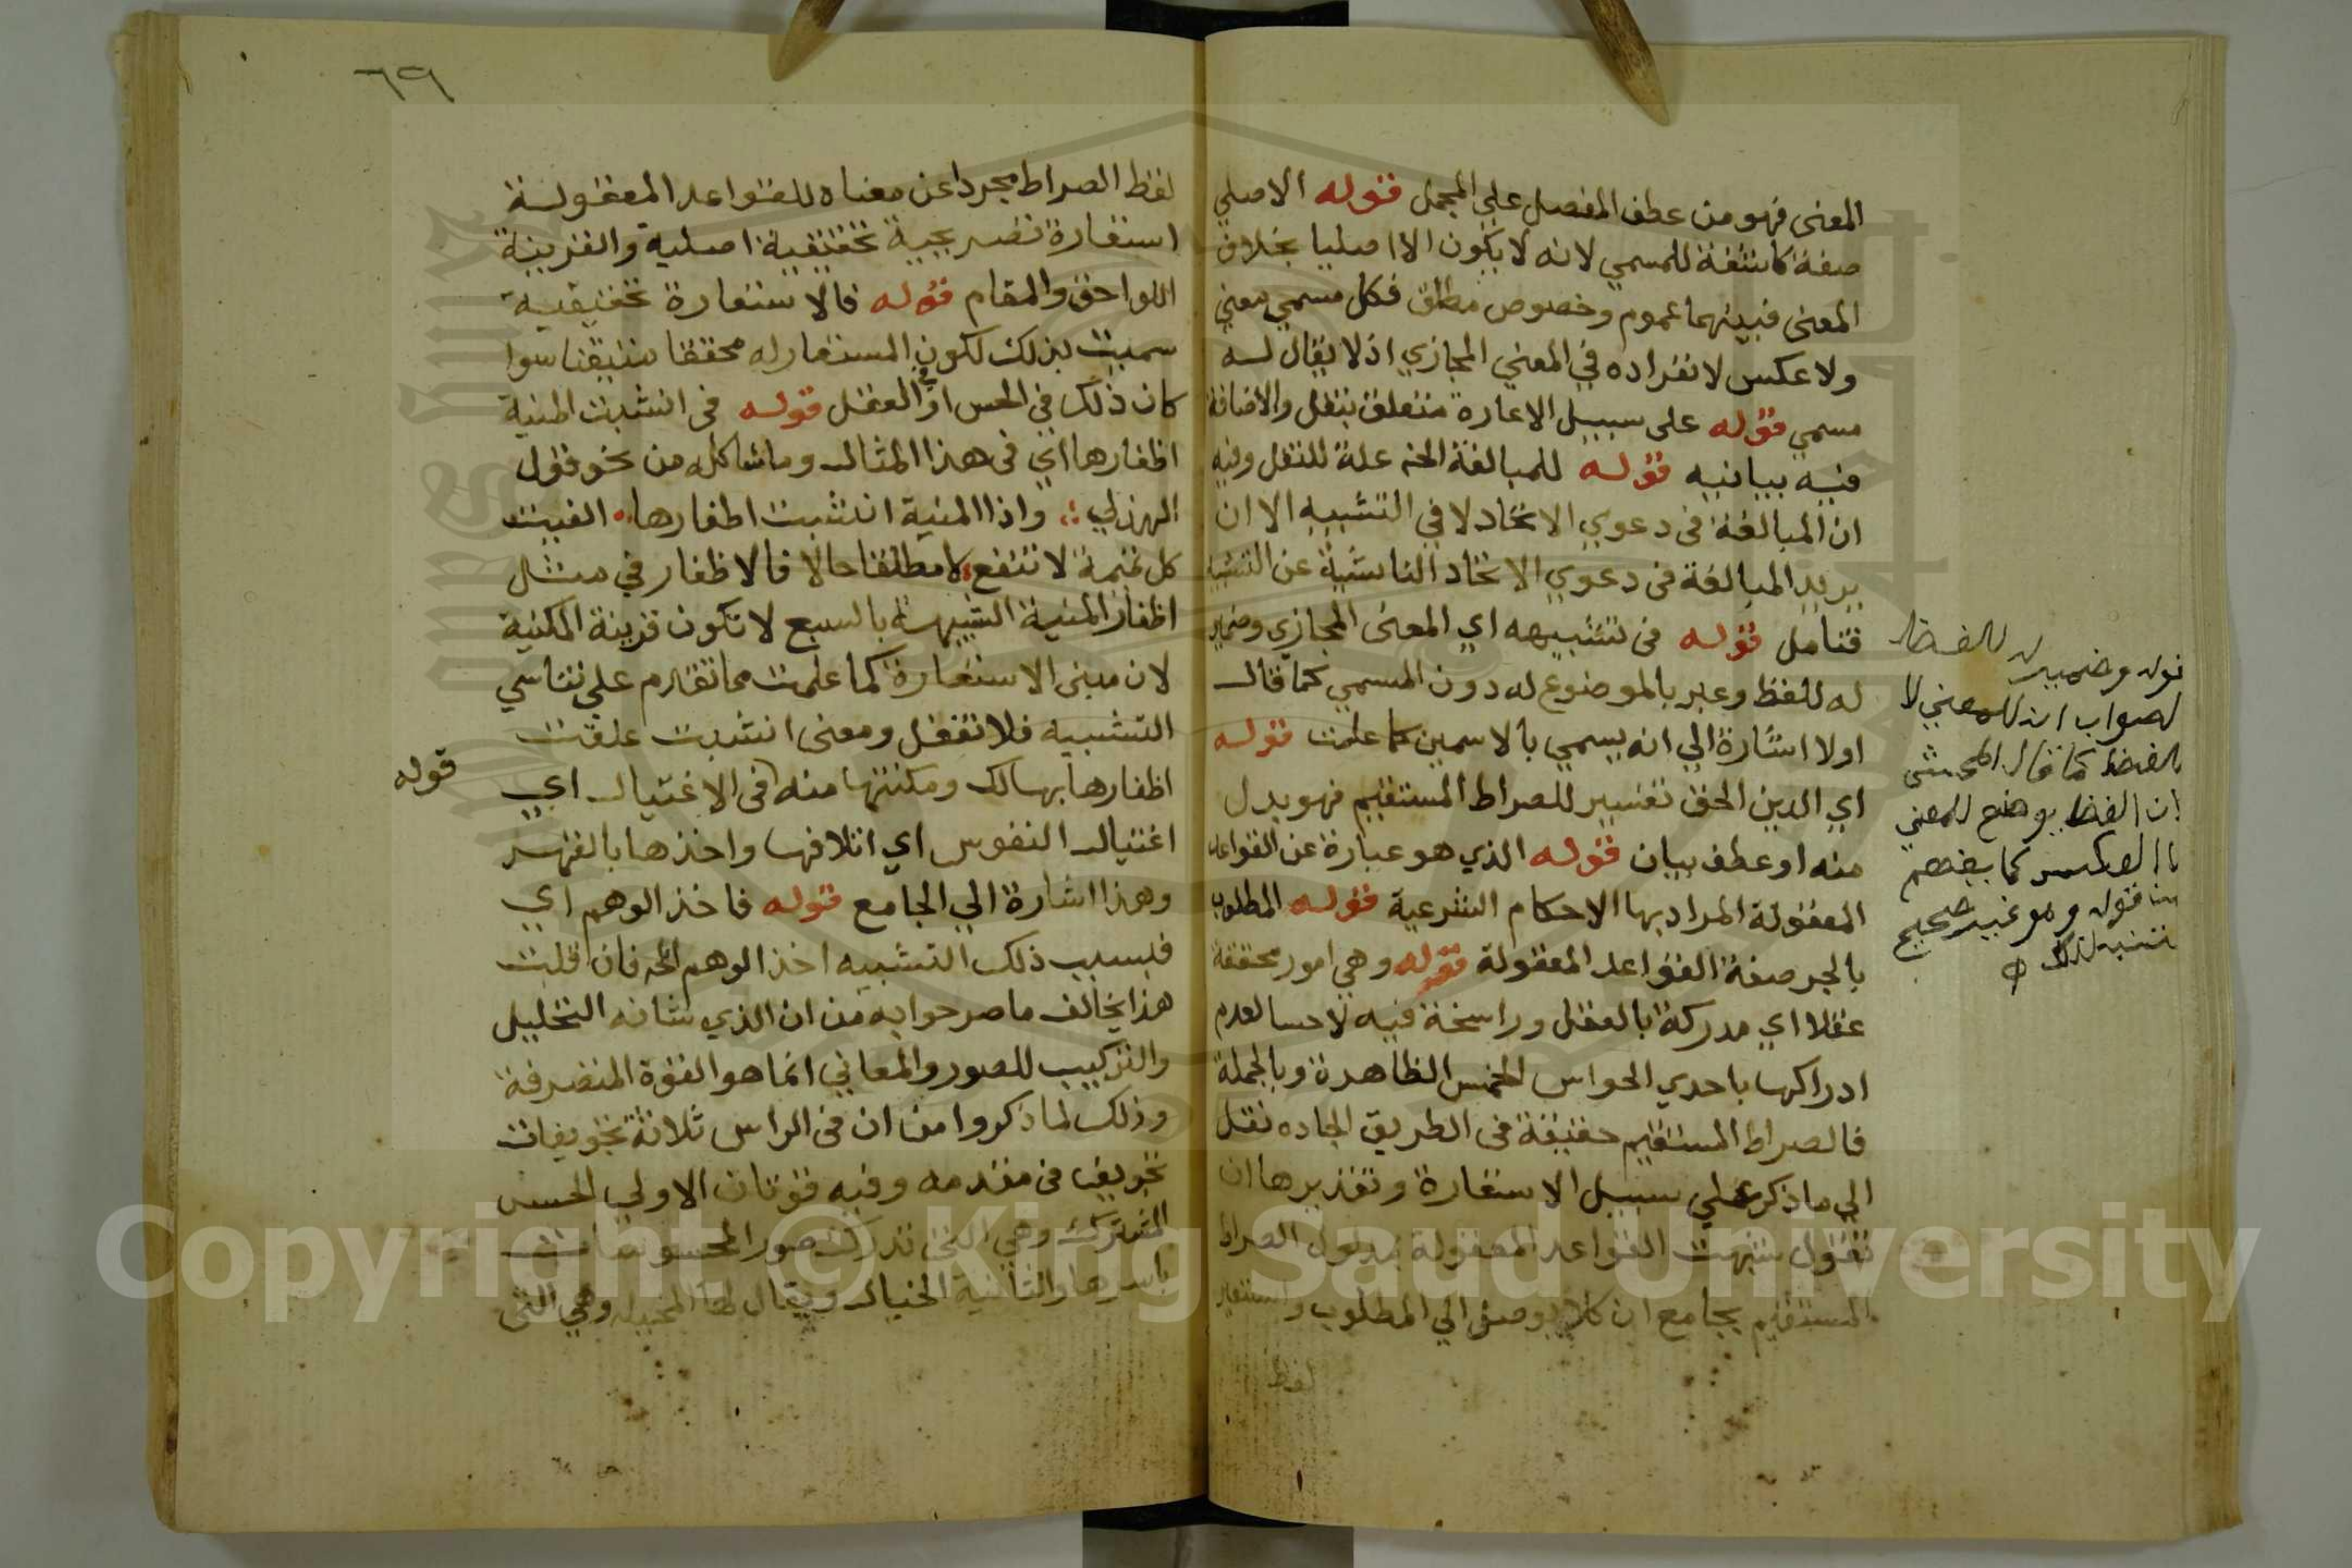 المعنى فهو من عطف المفصل على المجمل قوله الاصلي
صفة كاشفة للمسمي لانه لا يكون الا اصليا بخلاف
المعنى فبينهما عموم وخصوص مطلق فكل مسمي معني
ولا عكس لانفراده في المعني المجازي اذ لا يقال له
مسمي قوله على سبيل الاعارة متعلق بنقل والاضافة
فيه بيانيه قوله للمبالغة الخ علة للنقل وفيه
ان المبالغة فى دعوي الاتحاد لا في التشبيه الا ان
يريد المبالغة فى دعوي الاتحاد الناشية عن التشبيه
فتامل قوله فى تشبيهه اي المعنى المجازي وضمير
له للفظ وعبر بالموضوع له دون المسمي كما قال
اولا اشارة الي انه يسمي بالاسمين كما علمت قوله
اي الدين الحق تفسير للصراط المستقيم فهو بدل
منه او عطف بيان قوله الذي هو عبارة عن القواعد
المعقولة المراد بها الاحكام الشرعية قوله المطلوب
بالجر صفة القواعد المعقولة قوله وهي امور محققة
عقلا اي مدركة بالعقل وراسخة فيه لا حسا لعدم
ادراكها باحدي الحواس الخمس الظاهرة وبالجملة
فالصراط المستقيم حقيقة فى الطريق الجاده نقل
الي ما ذكر على سبيل الاستعارة وتقديرها ان
تقول شبهت القواعد المعقولة بمدلول الصراط
المستقيم بجامع ان كلا يوصل الي المطلوب واستعير
لفظ
قوله وضمير له للفظ
الصواب ان للمعني لا
للفظ كما قال المحشى
ان اللفظ يوضع للمعني
لا العكس كما يفهم
من قوله وهو غير صحيح
تنبه لذلك
٦٩
لفظ الصراط مجردا عن معناه للقواعد المعقولة
استعارة تصريحية تحقيقية اصلية والقرينة
اللواحق والمقام قوله فالاستعارة تحقيقية
سميت بذلك لكون المستعار له محققا متيقنا سوا
كان ذلك في الحس او في العقل قوله فى انشبت المنية
اظفارها اي فى هذا المثال وما شاكله من نحو قول
الهذلي واذا المنية انشبت اظفارها الفيت
كل تميمة لا تنفع لا مطلقا حالا فالاظفار في مثل
اظفار المنية الشبيهة بالسبع لا تكون قرينة المكنية
لان مبنى الاستعارة كما علمت مما تقدم علي تناسي
التشبيه فلا تغفل ومعنى انشبت علقت
اظفارها بهالك ومكنتها منه فى الاغتيال اي
قوله
اغتيال النفوس اي اتلافها واخذها بالقهر
وهذا اشارة الي الجامع قوله فاخذ الوهم اي
فبسبب ذلك التشبيه اخذ الوهم الخ فان قلت
هذا يخالف ما صرحوا به من ان الذي شانه التحليل
والتركيب للصور والمعاني انما هو القوة المتصرفة
وذلك لما ذكروا من ان فى الراس ثلاثة تجويفات
تجويف فى مقدمه وفيه قوتان الاولي الحس
المشترك وهي التى تدرك صور المحسوسات
باسرها والثانية الخيال ويقال لها المخيله وهي التى
Copyright © King Saud University